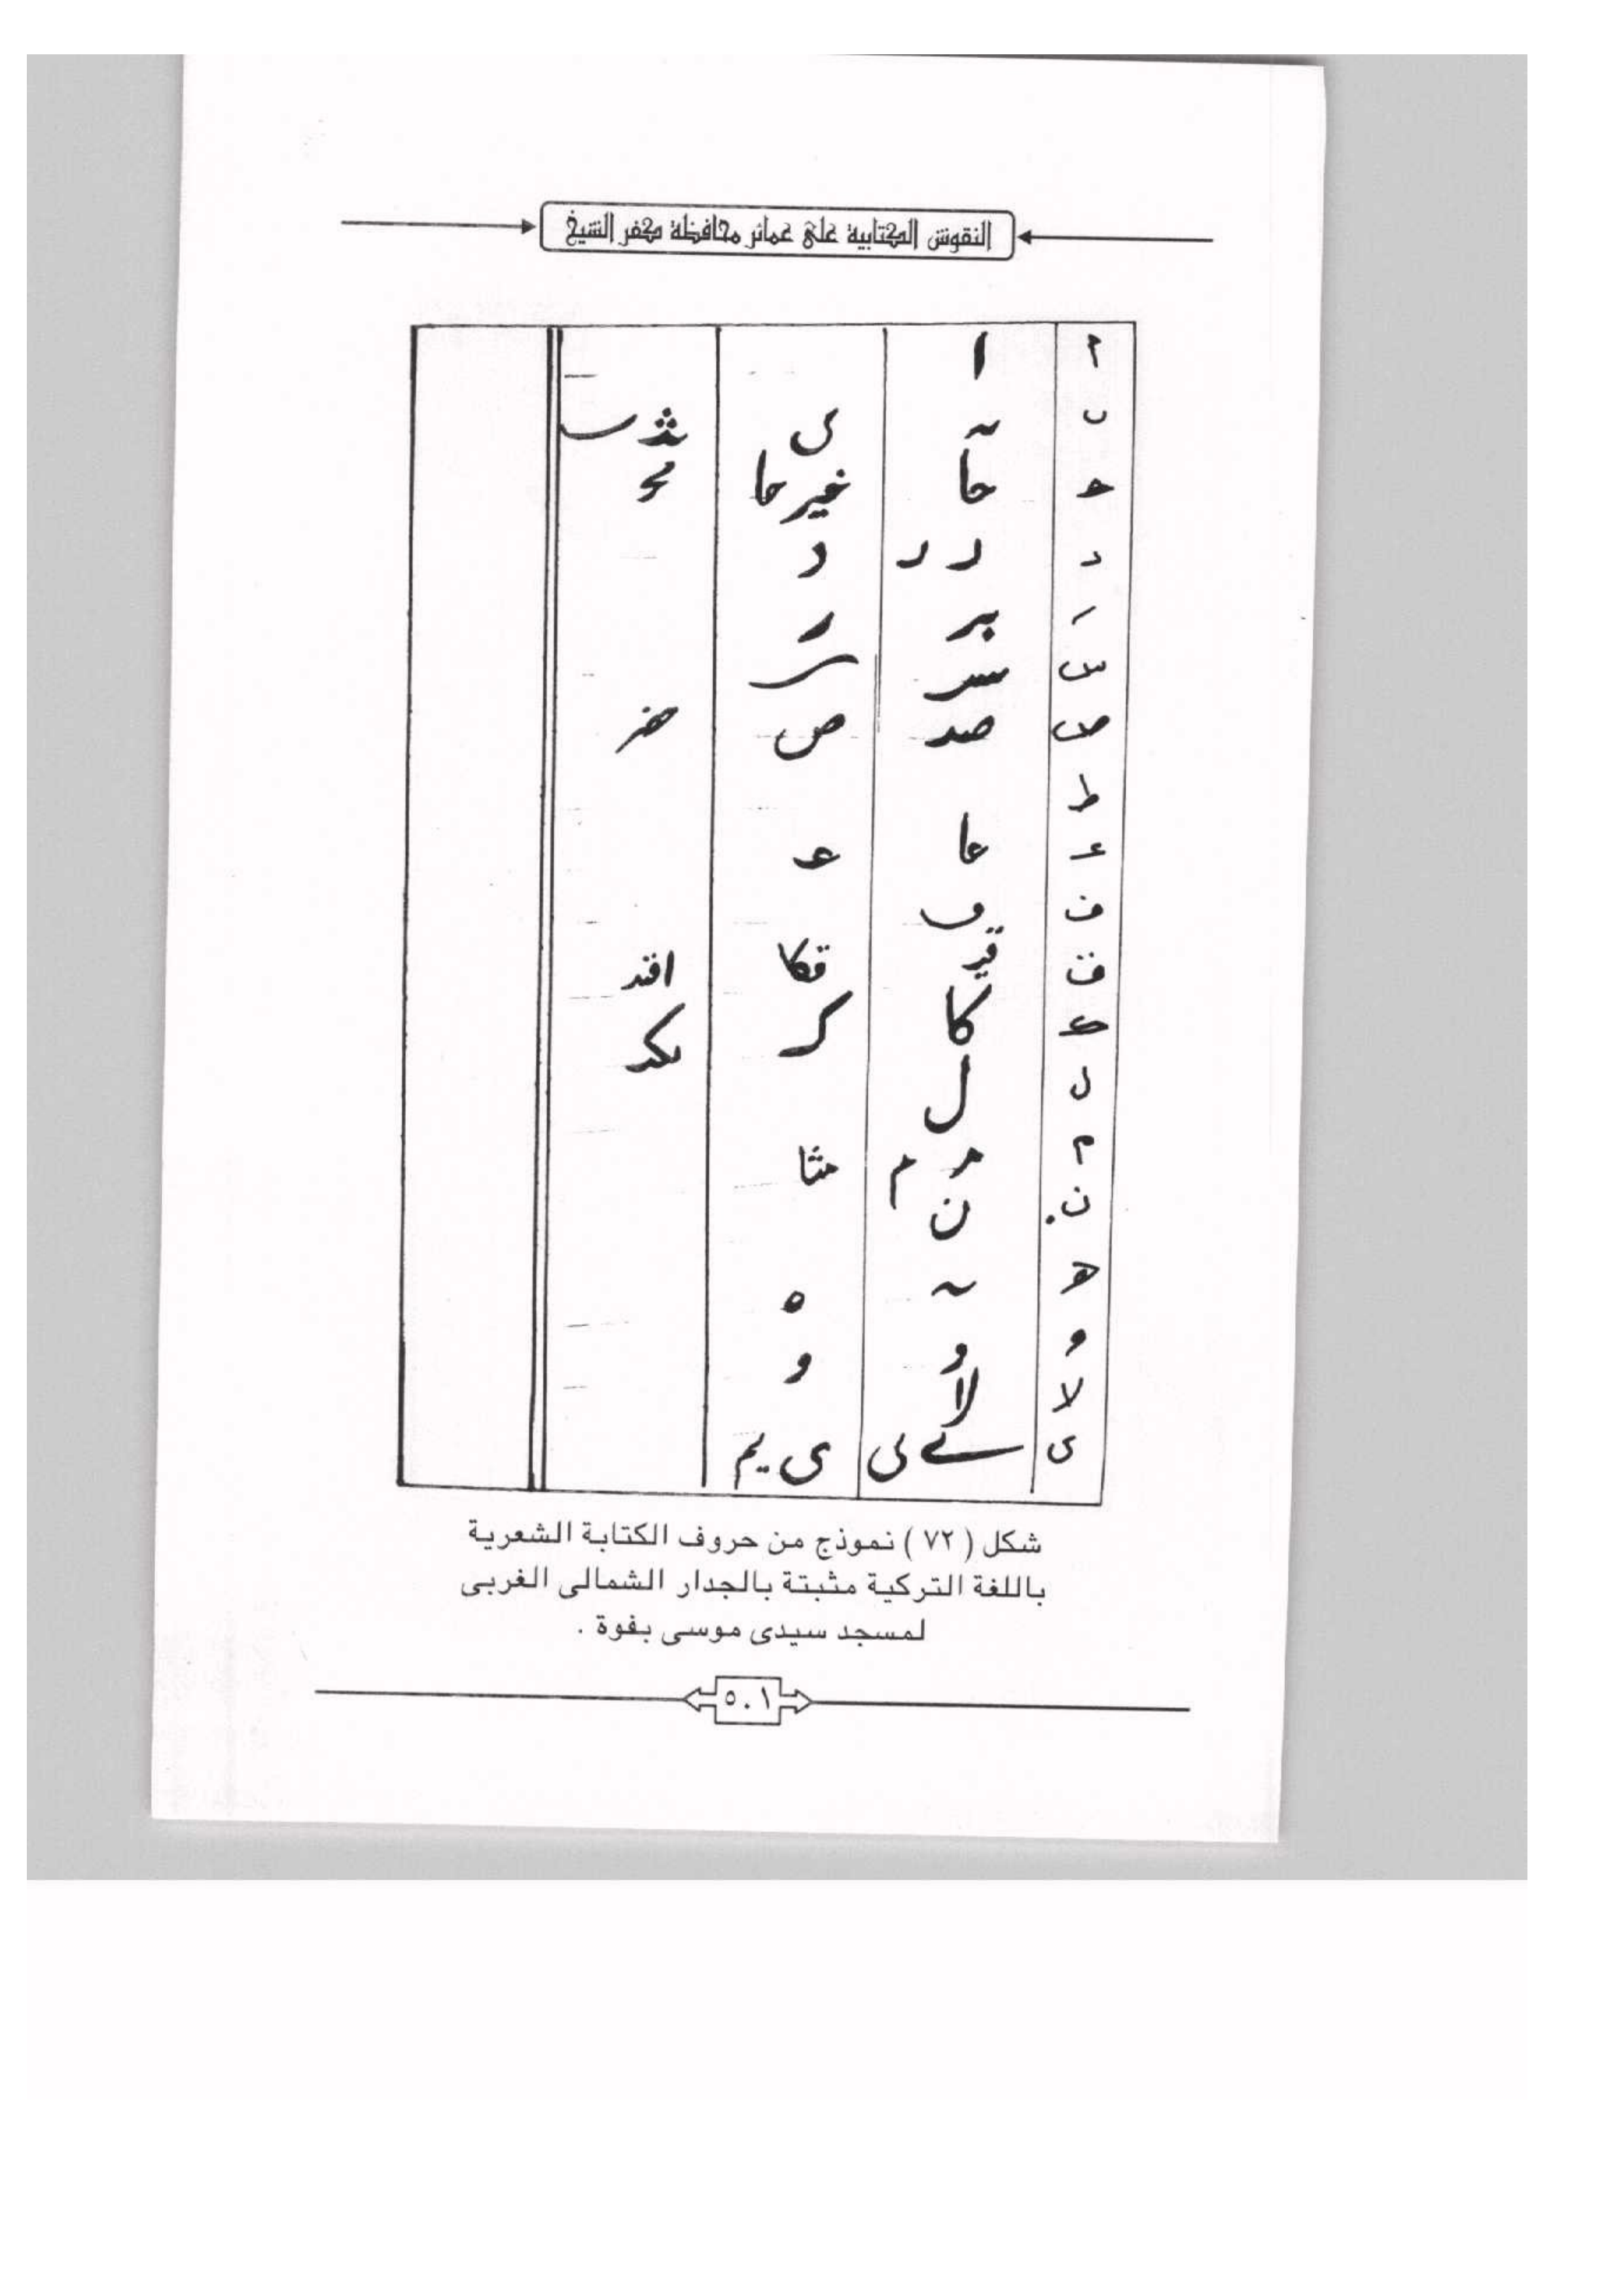 النقوش الكتابية على عمائر محافظة كفر الشيخ
ا ا
ب ى
حـ حا غير حا
د د د د
ر بر ر
س سر
ص صد ص
ط
ع عا ع
ف ف
ق قير قكا افند
ك كا كر بكد
ل ل
م م م مثا
ن. ن
هـ ه
و و و
لا لا
ى ے ى ى يم
شكل ( ٧٢ ) نموذج من حروف الكتابة الشعرية
باللغة التركية مثبتة بالجدار الشمالى الغربى
لمسجد سيدى موسى بفوة .
٥٠١